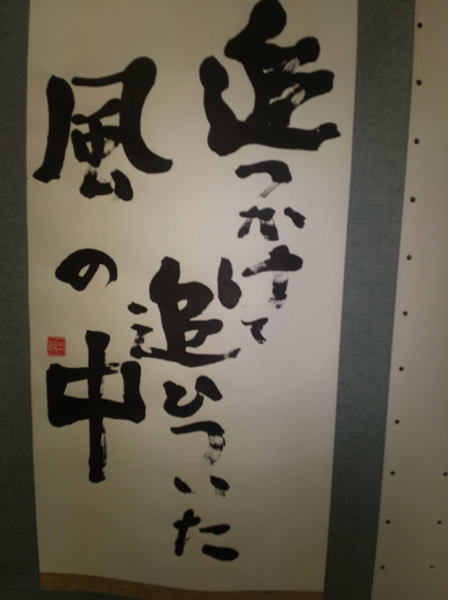 追つかけて
追ひついた
風の中